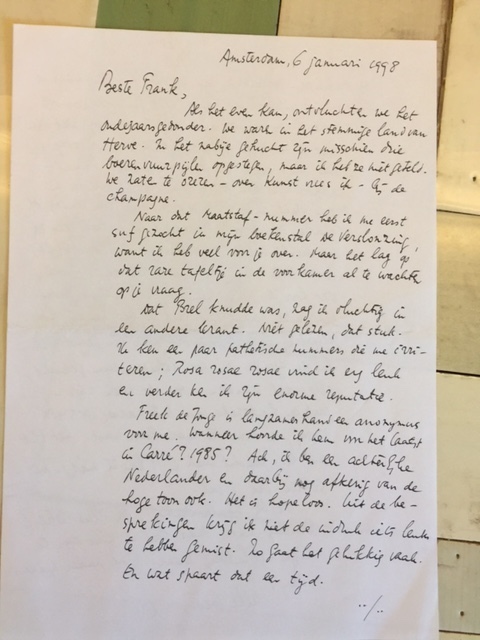 Amsterdam, 6 januari 1998
Beste Frank,
Als het even kan, ontvluchten we het
oudejaarsgedonder. We waren in het stemmige land van
Herve. In het nabije gehucht zijn misschien drie
boerenvuurpijlen opgestegen, maar ik heb ze niet geteld.
We zaten te orezen - over kunst vrees ik - bij de
champagne.
Naar dat Maatstaf-nummer heb ik me eerst
suf gezocht in mijn boekenstal De Verslonzing,
want ik heb veel voor je over. Maar het lag op
dat rare tafeltje in de voorkamer al te wachten
op je vraag.
Dat Brel knudde was, zag ik vluchtig in
een andere krant. Niet gelezen, dat stuk.
Ik ken een paar pathetische nummers die me irri-
teren; Rosa rosae rosae vind ik erg leuk
en verder ken ik zijn enorme reputatie.
Freek de Jonge is langzamerhand een anonymus
voor me. Wanneer hoorde ik hem voor het laatst
in Carré? 1985? Ach, ik ben een achterlijke
Nederlander en daarbij nog afkerig van de
hoge toon ook. Het is hopeloos. Uit de be-
sprekingen krijg ik niet de indruk iets leuks
te hebben gemist. Zo gaat het gelukkig vaak.
En wat spaart dat een tijd.
../.